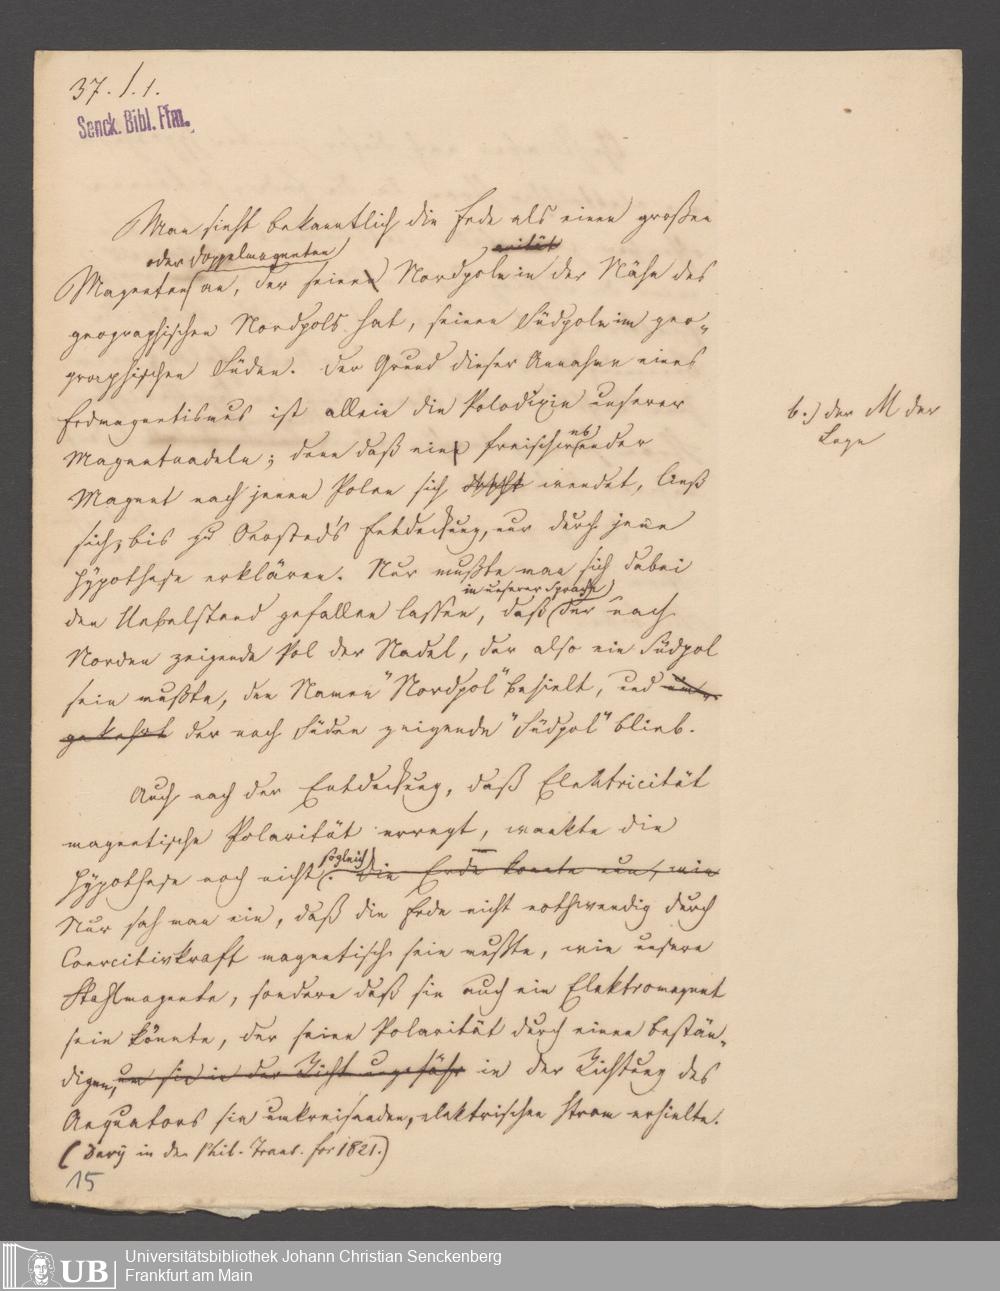 37. /. 1.
Senck. Bibl. Ffm.
Man sieht bekanntlich die Erde als einen großen
oder Doppelmagneten
Magneten an, der seinen Nordpol in der Nähe des
geographischen Nordpols hat, seinen Südpol im geo-
graphischen Süden. Der Grund dieser Annahme eines
Erdmagnetismus ist allein die Polodixie unserer
b.) der M der
Lage
Magnetnadeln; denn daß ein freischwebender
Magnet nach jenen Polen sich wendet, ließ
sich, bis zu Oersted's Entdeckung, nur durch jene
Hypothese erklären. Nur mußte man sich dabei
in unserer Sprache
den Uebelstand gefallen lassen, daß der nach
Norden zeigende Pol der Nadel, der also ein Südpol
sein mußte, den Namen "Nordpol" behielt, und um-
gekehrt der nach Süden zeigende "Südpol" blieb.
Auch nach der Entdeckung, daß Elektricität
magnetische Polarität erregt, wankte die
sogleich
Hypothese noch nicht. Die Erde konnte nun, wie
Nur sah man ein, daß die Erde nicht nothwendig durch
Coercitivkraft magnetisch sein mußte, wie unsere
Stahlmagnete, sondern daß sie auch ein Elektromagnet
sein könnte, der seine Polarität durch einen bestän-
digen, um sie in der Richt ungefähr in der Richtung des
Aequators sie umkreisenden, elektrischen Strom erhielte.
(Davy in den Phil. Trans. for 1821.)
15
UB
Universitätsbibliothek Johann Christian Senckenberg
Frankfurt am Main